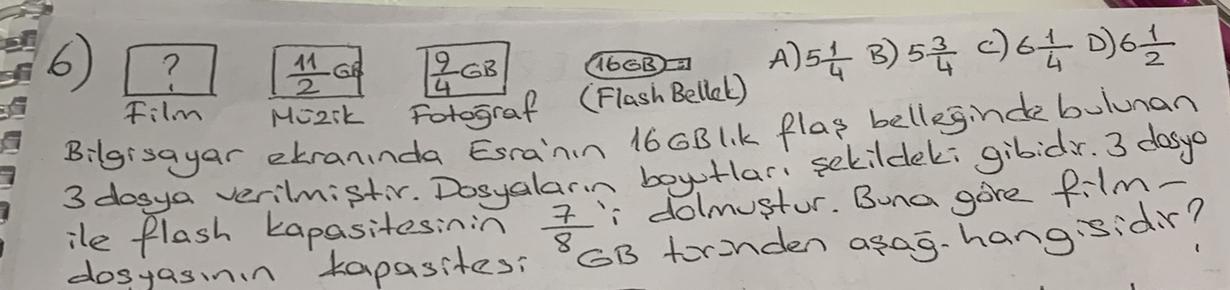 6) ? 11/2 GB 9/4 GB 16GB A) 5 1/4 B) 5 3/4 C) 6 1/4 D) 6 1/2
Film Müzik Fotoğraf (Flash Bellek)
Bilgisayar ekranında Esra'nın 16 GB lık flaş belleğinde bulunan
3 dosya verilmiştir. Dosyaların boyutları şekildeki gibidir. 3 dosya
ile flash kapasitesinin 7/8 'i dolmuştur. Buna göre film
dosyasının kapasitesi GB türünden aşağ. hangisidir?